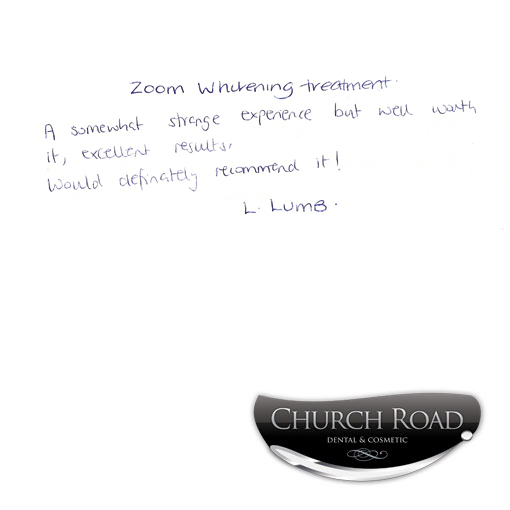 Zoom Whitening treatment.
A somewhat strange experience but well worth
it, excellent results.
Would definately recommend it!
L. Lumb.
CHURCH ROAD
DENTAL & COSMETIC